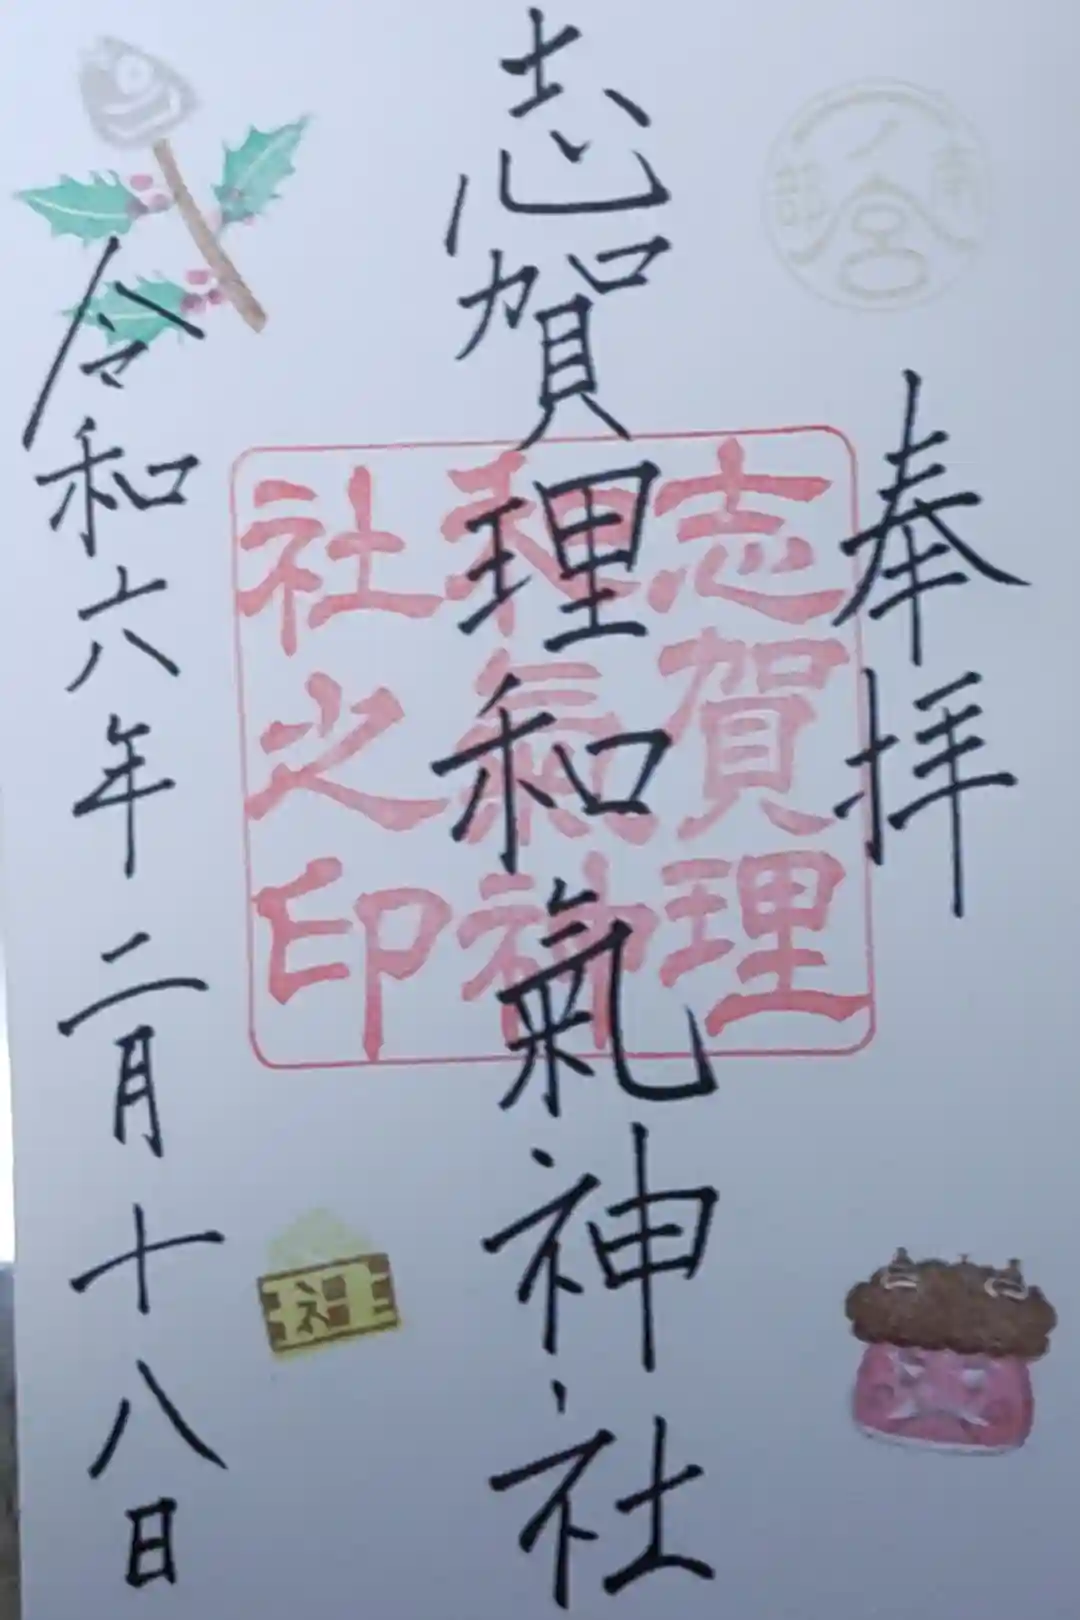 奉拝
志賀理和氣神社
志賀理
和氣神
社之印
令和六年二月十八日
社